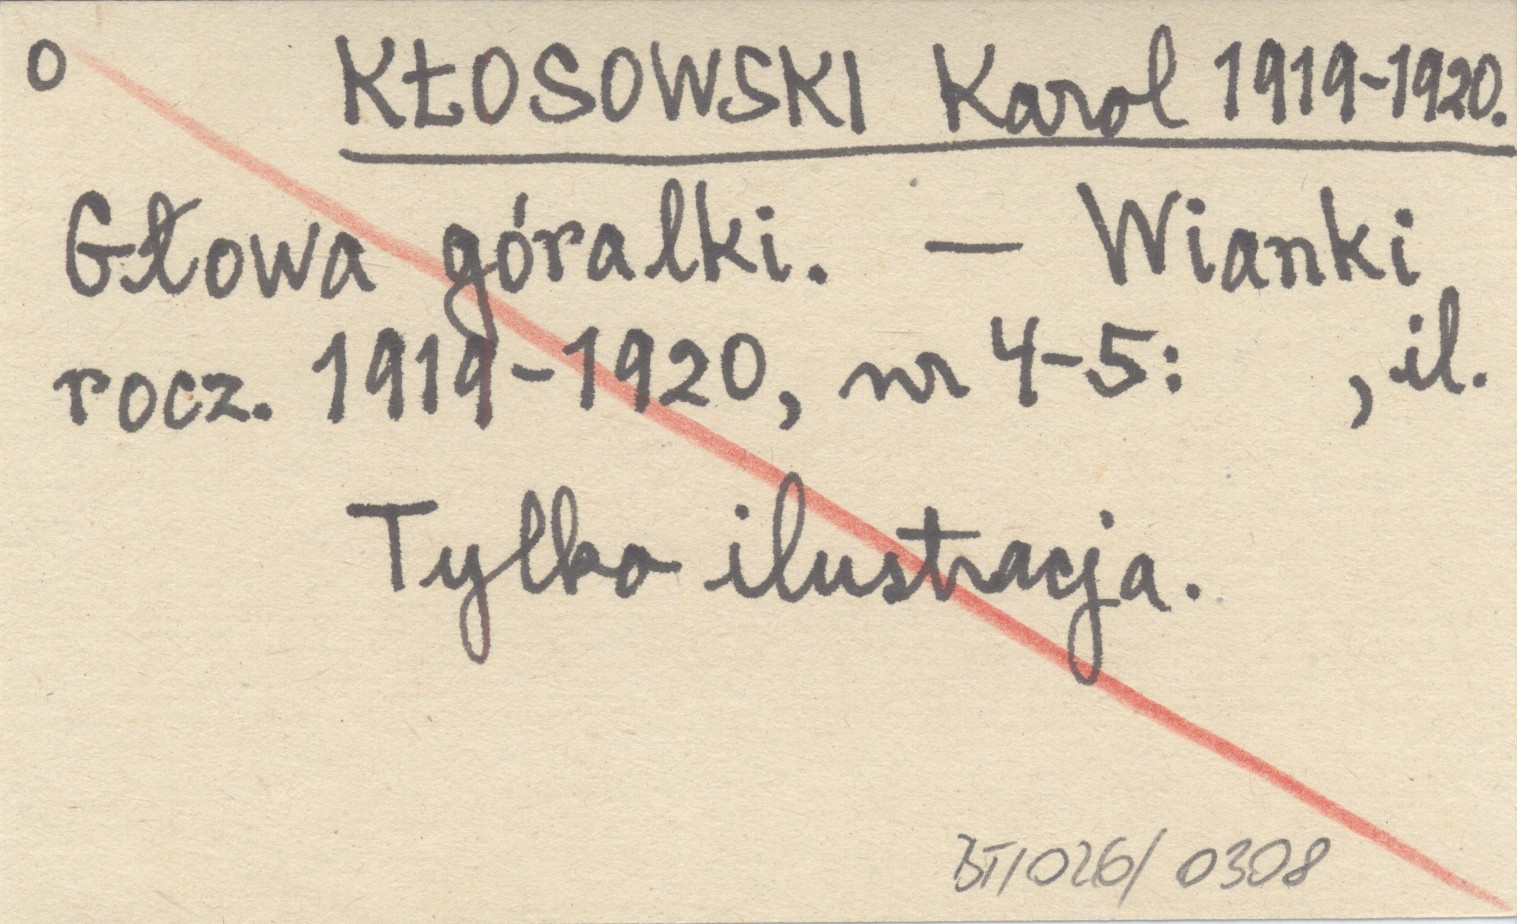 o KŁOSOWSKI Karol 1919-1920.
Głowa góralki. — Wianki
rocz. 1919-1920, nr 4-5: , il.
Tylko ilustracja.
BT/026/ 0308